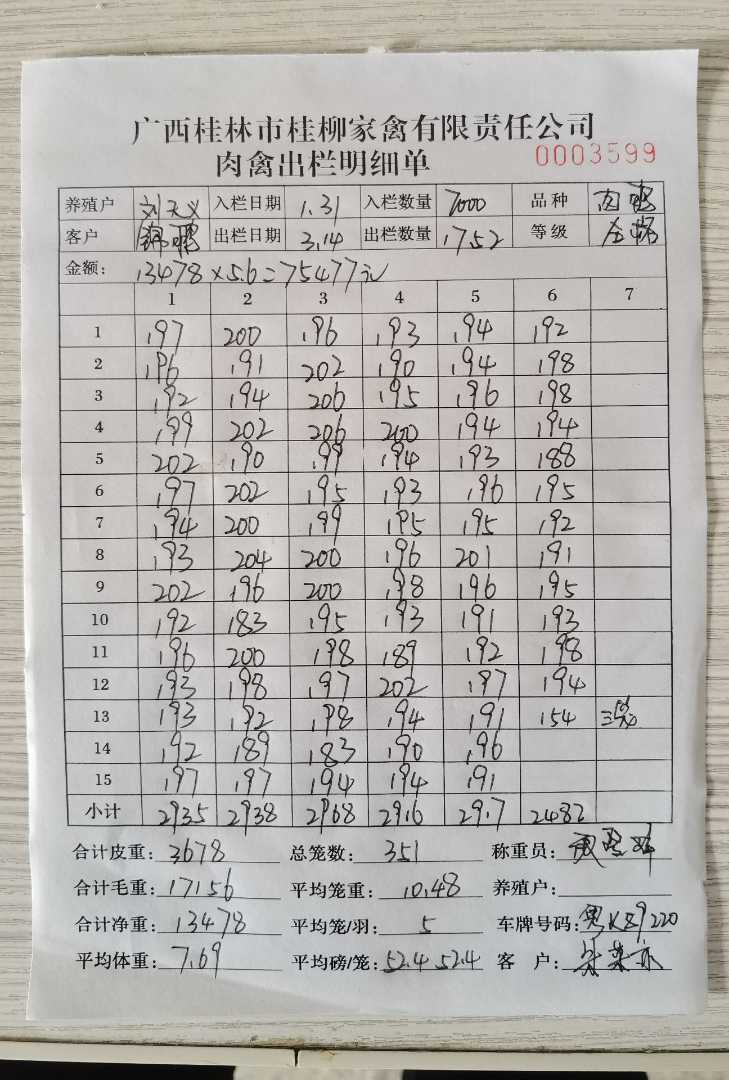 广西桂林市桂柳家禽有限责任公司
肉禽出栏明细单 0003599
养殖户 刘天义 入栏日期 1.31 入栏数量 7000 品种 肉鸭
客户 锦鹏 出栏日期 3.14 出栏数量 1752 等级
金额: 13478×5.6=75477元
1 2 3 4 5 6 7
1 197 200 196 193 194 192
2 196 191 202 190 194 198
3 192 194 206 195 196 198
4 199 202 206 200 194 194
5 202 190 199 194 193 188
6 197 202 195 193 196 195
7 194 200 199 195 195 192
8 193 204 200 196 201 191
9 202 196 200 198 196 195
10 192 183 195 193 191 193
11 196 200 198 189 192 198
12 193 198 197 202 197 194
13 193 192 198 194 191 154
14 192 189 183 190 196
15 197 197 194 194 191
小计 2935 2938 2968 29.6 29.7 2482
合计皮重: 3678 总笼数: 351 称重员:
合计毛重: 17156 平均笼重: 10.48 养殖户:
合计净重: 13478 平均笼/羽: 5 车牌号码: 粤K89220
平均体重: 7.69 平均磅/笼: 52.4 52.4 客 户: